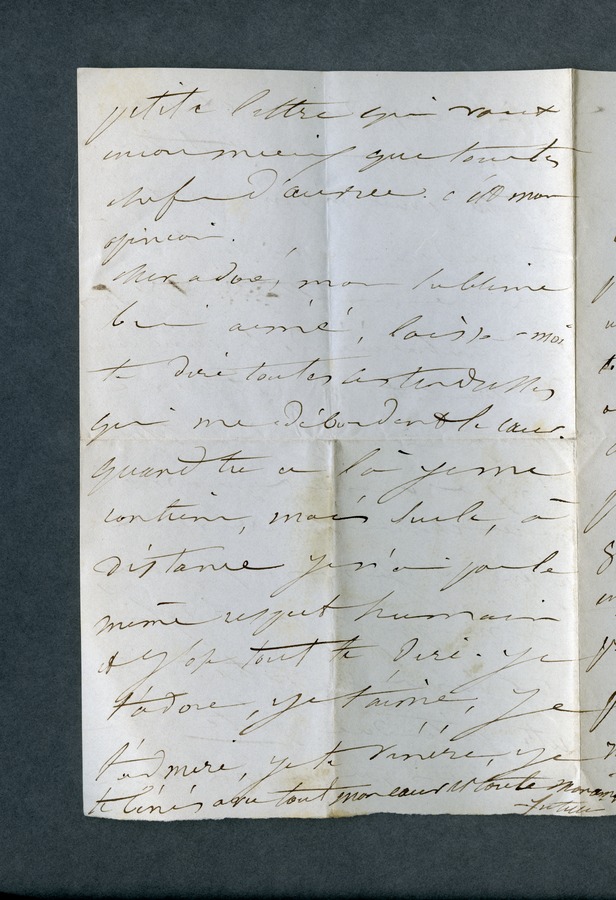 petite lettre qui vaut
encore mieux que tous tes
chefs d'œuvre. c'est mon
opinion.
cher adoré, mon sublime
bien aimé, laisse-moi
te dire toutes les tendresses
qui me débordent le cœur.
quand tu es là je me
contiens, mais seule, à
distance je n'ai pas le
même respect humain
et j'ose tout te dire. je
t'adore, je t'aime, je
t'admire, je te vénère, je
te bénis avec tout mon cœur et toute mon âme
Juliette